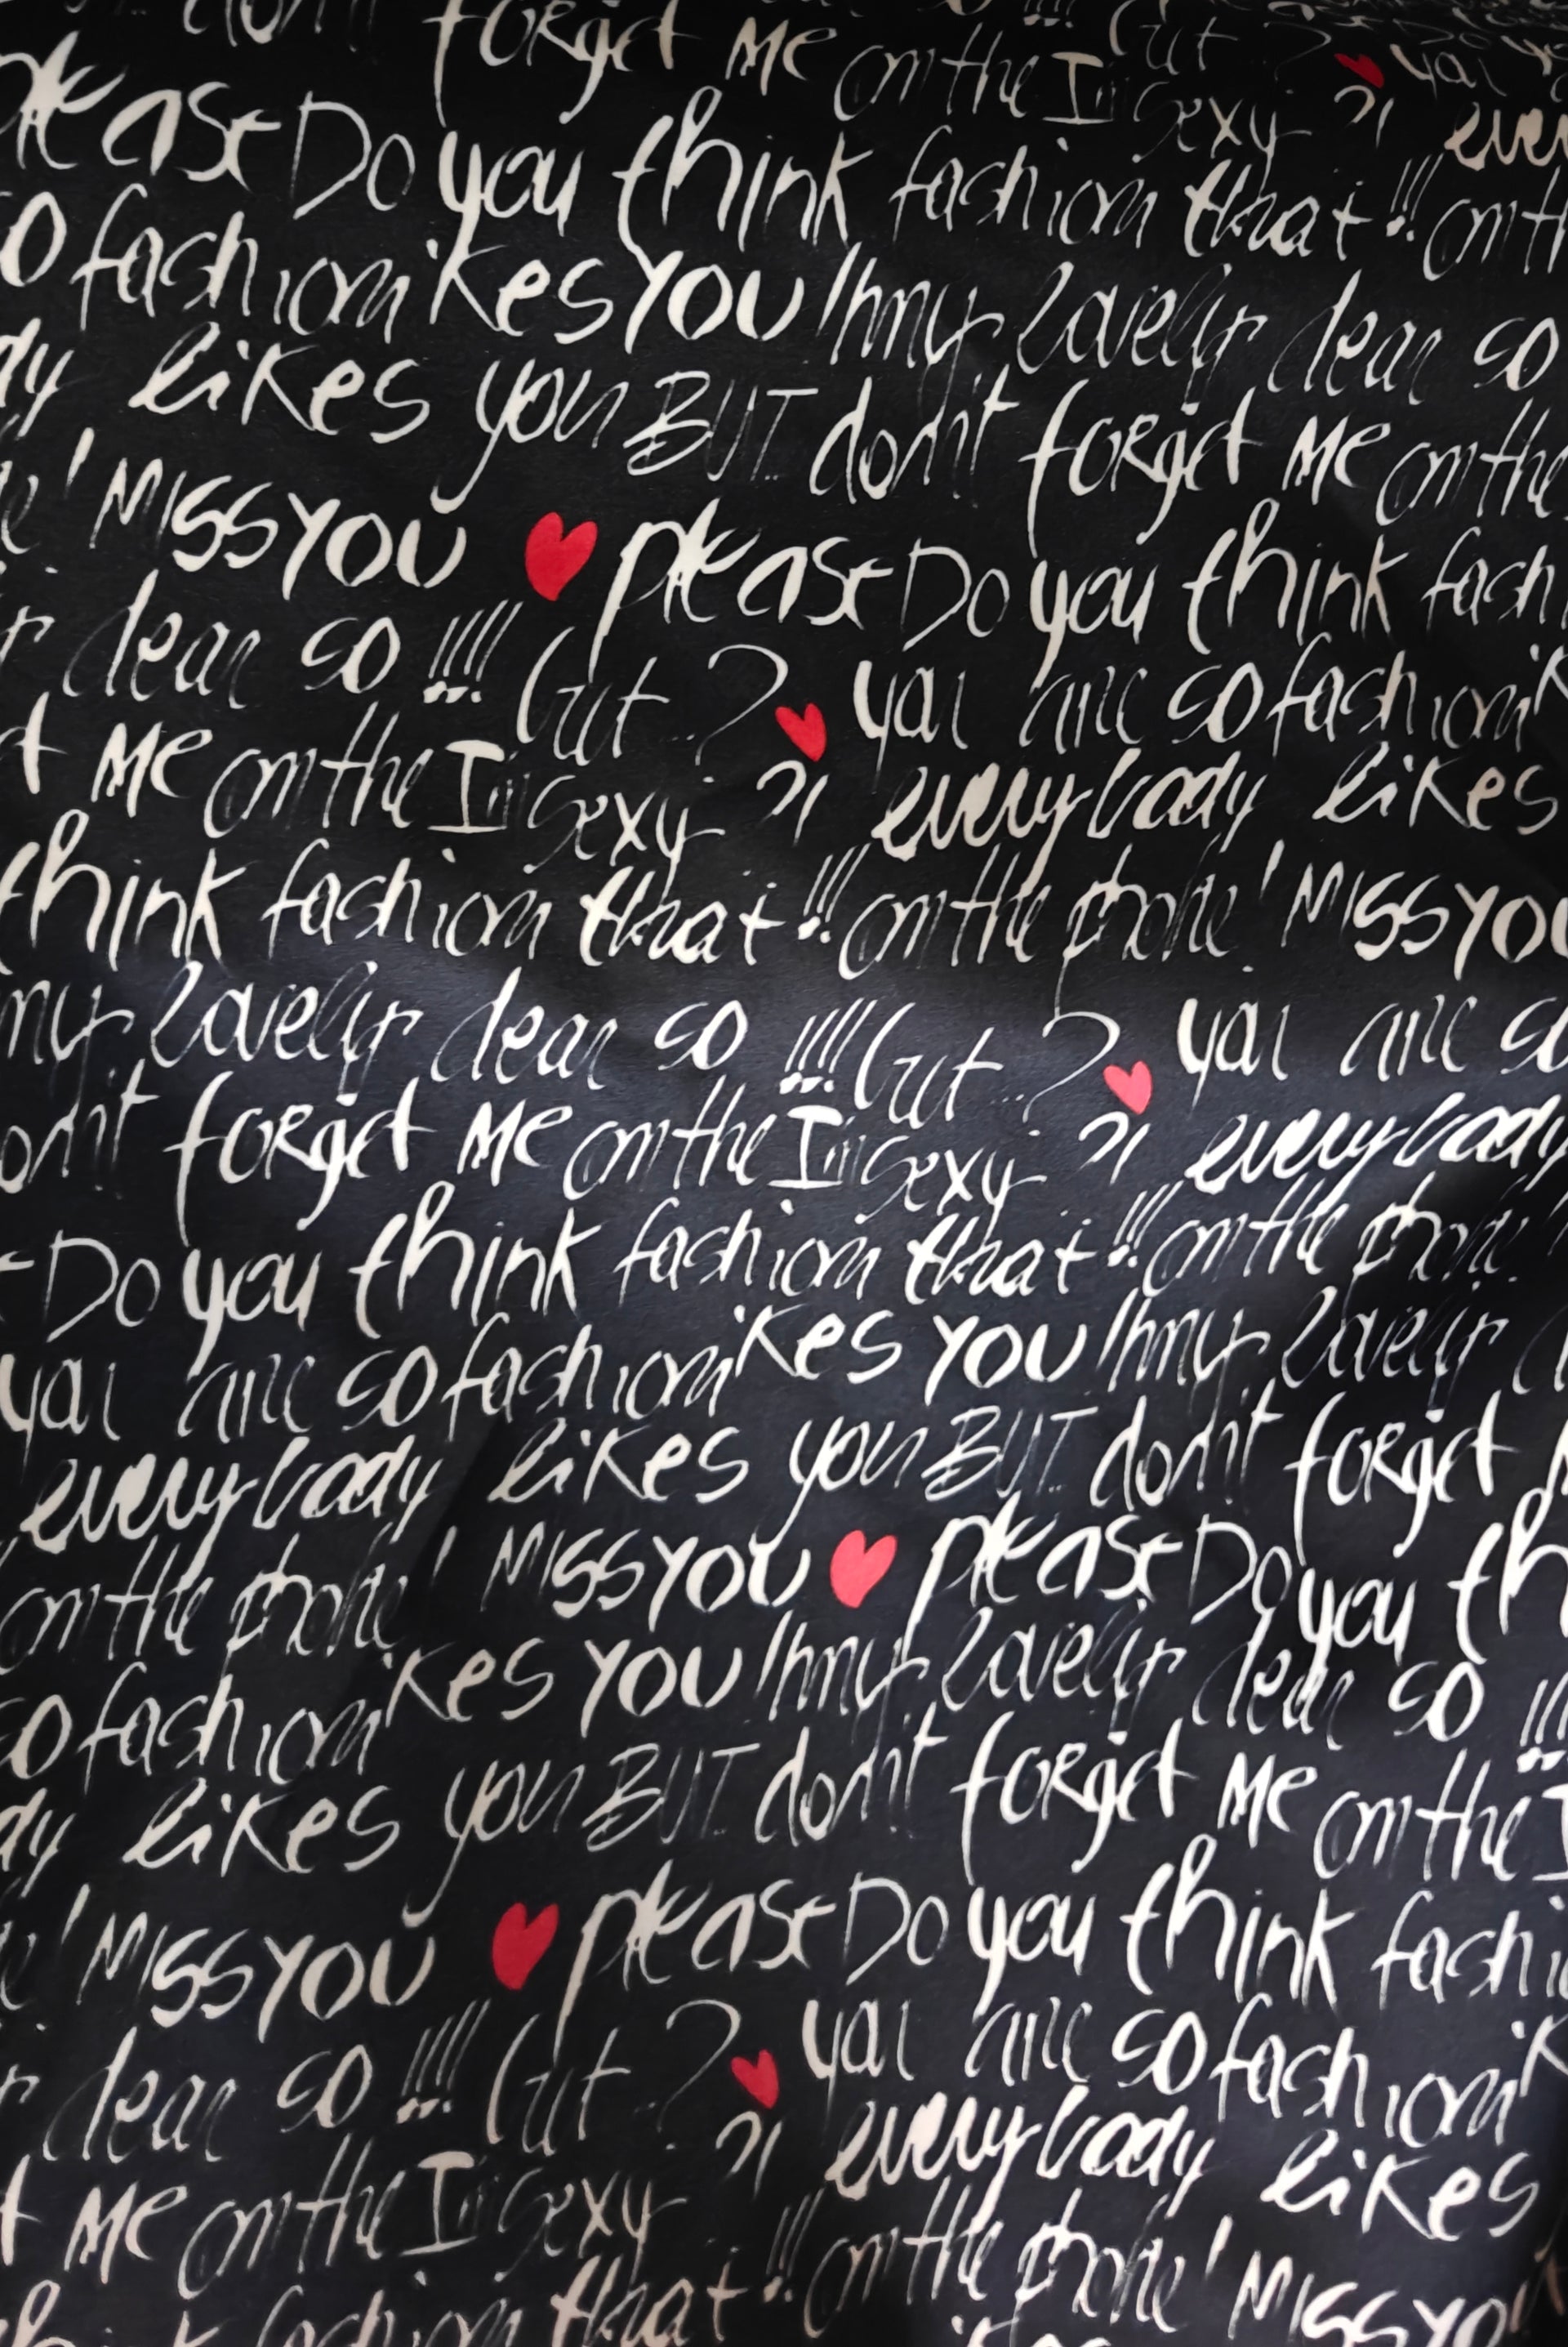 forget Me on the I'm Sexy ?!
please Do you think fashion that!!! on th
so fashion ikes YOU !hmy lovely dear so
dy likes you BUT.. don't forget Me on the
e! MISS YOU ♥ please Do you think fash
r dear so !!!! Cut ..? ♥ you are so fashion ik
t Me on the I'm Sexy ?! everybody likes
think fashion that!!! on the phone! MISS YOU
my lovely dear so !!!! Cut ..? ♥ you are so
on't forget Me on the I'm Sexy ?! everybody
Do you think fashion that!!! on the phone!
you are so fashion ikes YOU !hmy lovely
everybody likes you BUT.. don't forget
on the phone! MISS YOU ♥ please Do you th
so fashion ikes YOU !hmy lovely dear so !!!
dy likes you BUT.. don't forget Me on the I
e! MISS YOU ♥ please Do you think fashi
r dear so !!!! Cut ..? ♥ you are so fashion ik
t Me on the I'm Sexy ?! everybody likes
think fashion that!!! on the phone! MISS YOU